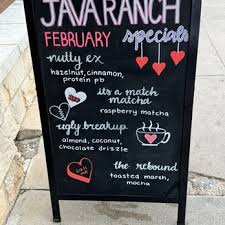 JAVA RANCH
FEBRUARY specials
nutty ex
hazelnut, cinnamon,
protein pb
its a match
matcha
raspberry matcha
ugly breakup
almond, coconut,
chocolate drizzle
the rebound
toasted marsh,
mocha